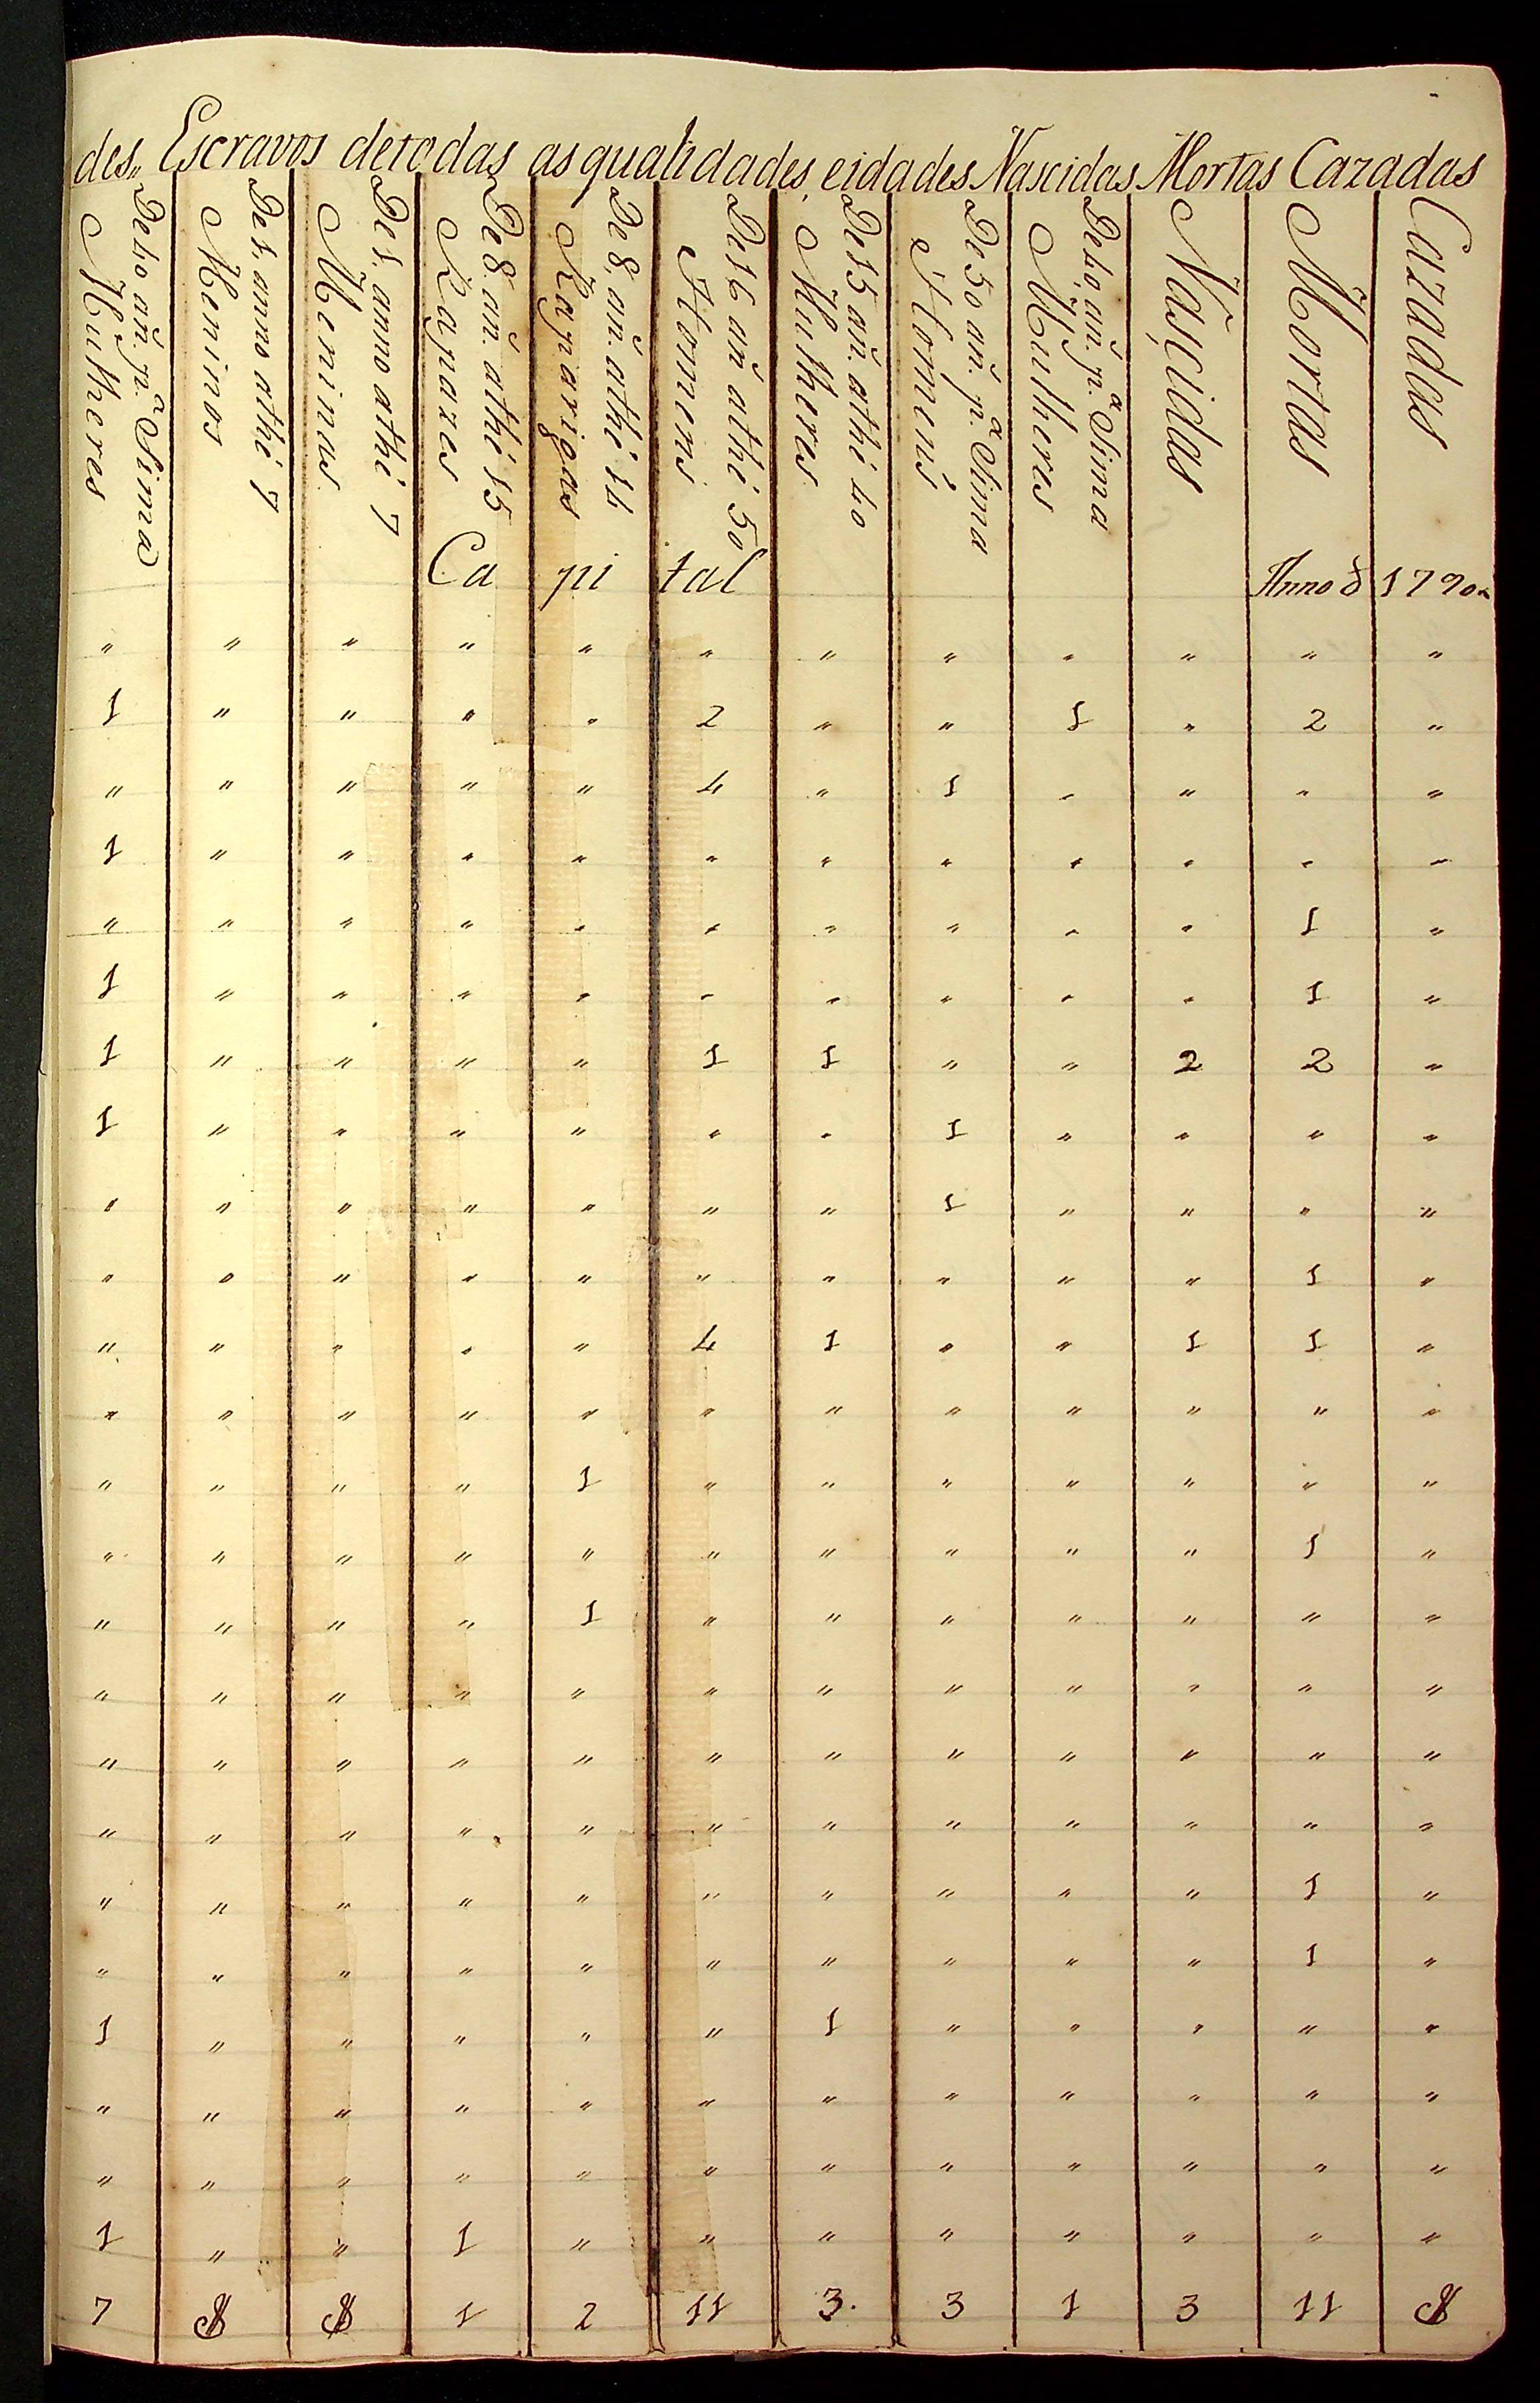 des„ Escravos detodas asqualidades, eidades Nascidas Mortas Cazadas
De 40 añ. p.ª Sima Mulheres
De 1. anno athé 7 Meninos
De 1. anno athé 7 Meninas
De 8. añ. athé 15 Rapazes
De 8. añ. athé 14 Raparigas
De 16 añ athé 50 Homens
De 15 añ. athé 40 Mulheres
De 50 añ. p.ª Sima Homens
De 40 añ. p.ª Sima Mulheres
Nascidas
Mortas
Cazadas
Ca pi tal Anno d 1790„
„ „ „ „ „ „ „ „ „ „ „ „
1 „ „ „ „ 2 „ „ 1 „ 2 „
„ „ „ „ „ 4 „ 1 „ „ „ „
1 „ „ „ „ „ „ „ „ „ „ „
„ „ „ „ „ „ „ „ „ „ 1 „
1 „ „ „ „ „ „ „ „ „ 1 „
1 „ „ „ „ 1 1 „ „ 2 2 „
1 „ „ „ „ „ „ 1 „ „ „ „
„ „ „ „ „ „ „ 1 „ „ „ „
„ „ „ „ „ „ „ „ „ „ 1 „
„ „ „ „ „ 4 1 „ „ 1 1 „
„ „ „ „ „ „ „ „ „ „ „ „
„ „ „ „ 1 „ „ „ „ „ „ „
„ „ „ „ „ „ „ „ „ „ 1 „
„ „ „ „ 1 „ „ „ „ „ „ „
„ „ „ „ „ „ „ „ „ „ „ „
„ „ „ „ „ „ „ „ „ „ „ „
„ „ „ „ „ „ „ „ „ „ „ „
„ „ „ „ „ „ „ „ „ „ 1 „
„ „ „ „ „ „ „ „ „ „ 1 „
1 „ „ „ „ „ 1 „ „ „ „ „
„ „ „ „ „ „ „ „ „ „ „ „
„ „ „ „ „ „ „ „ „ „ „ „
1 „ „ 1 „ „ „ „ „ „ „ „
7 $ $ 1 2 11 3. 3 1 3 11 $